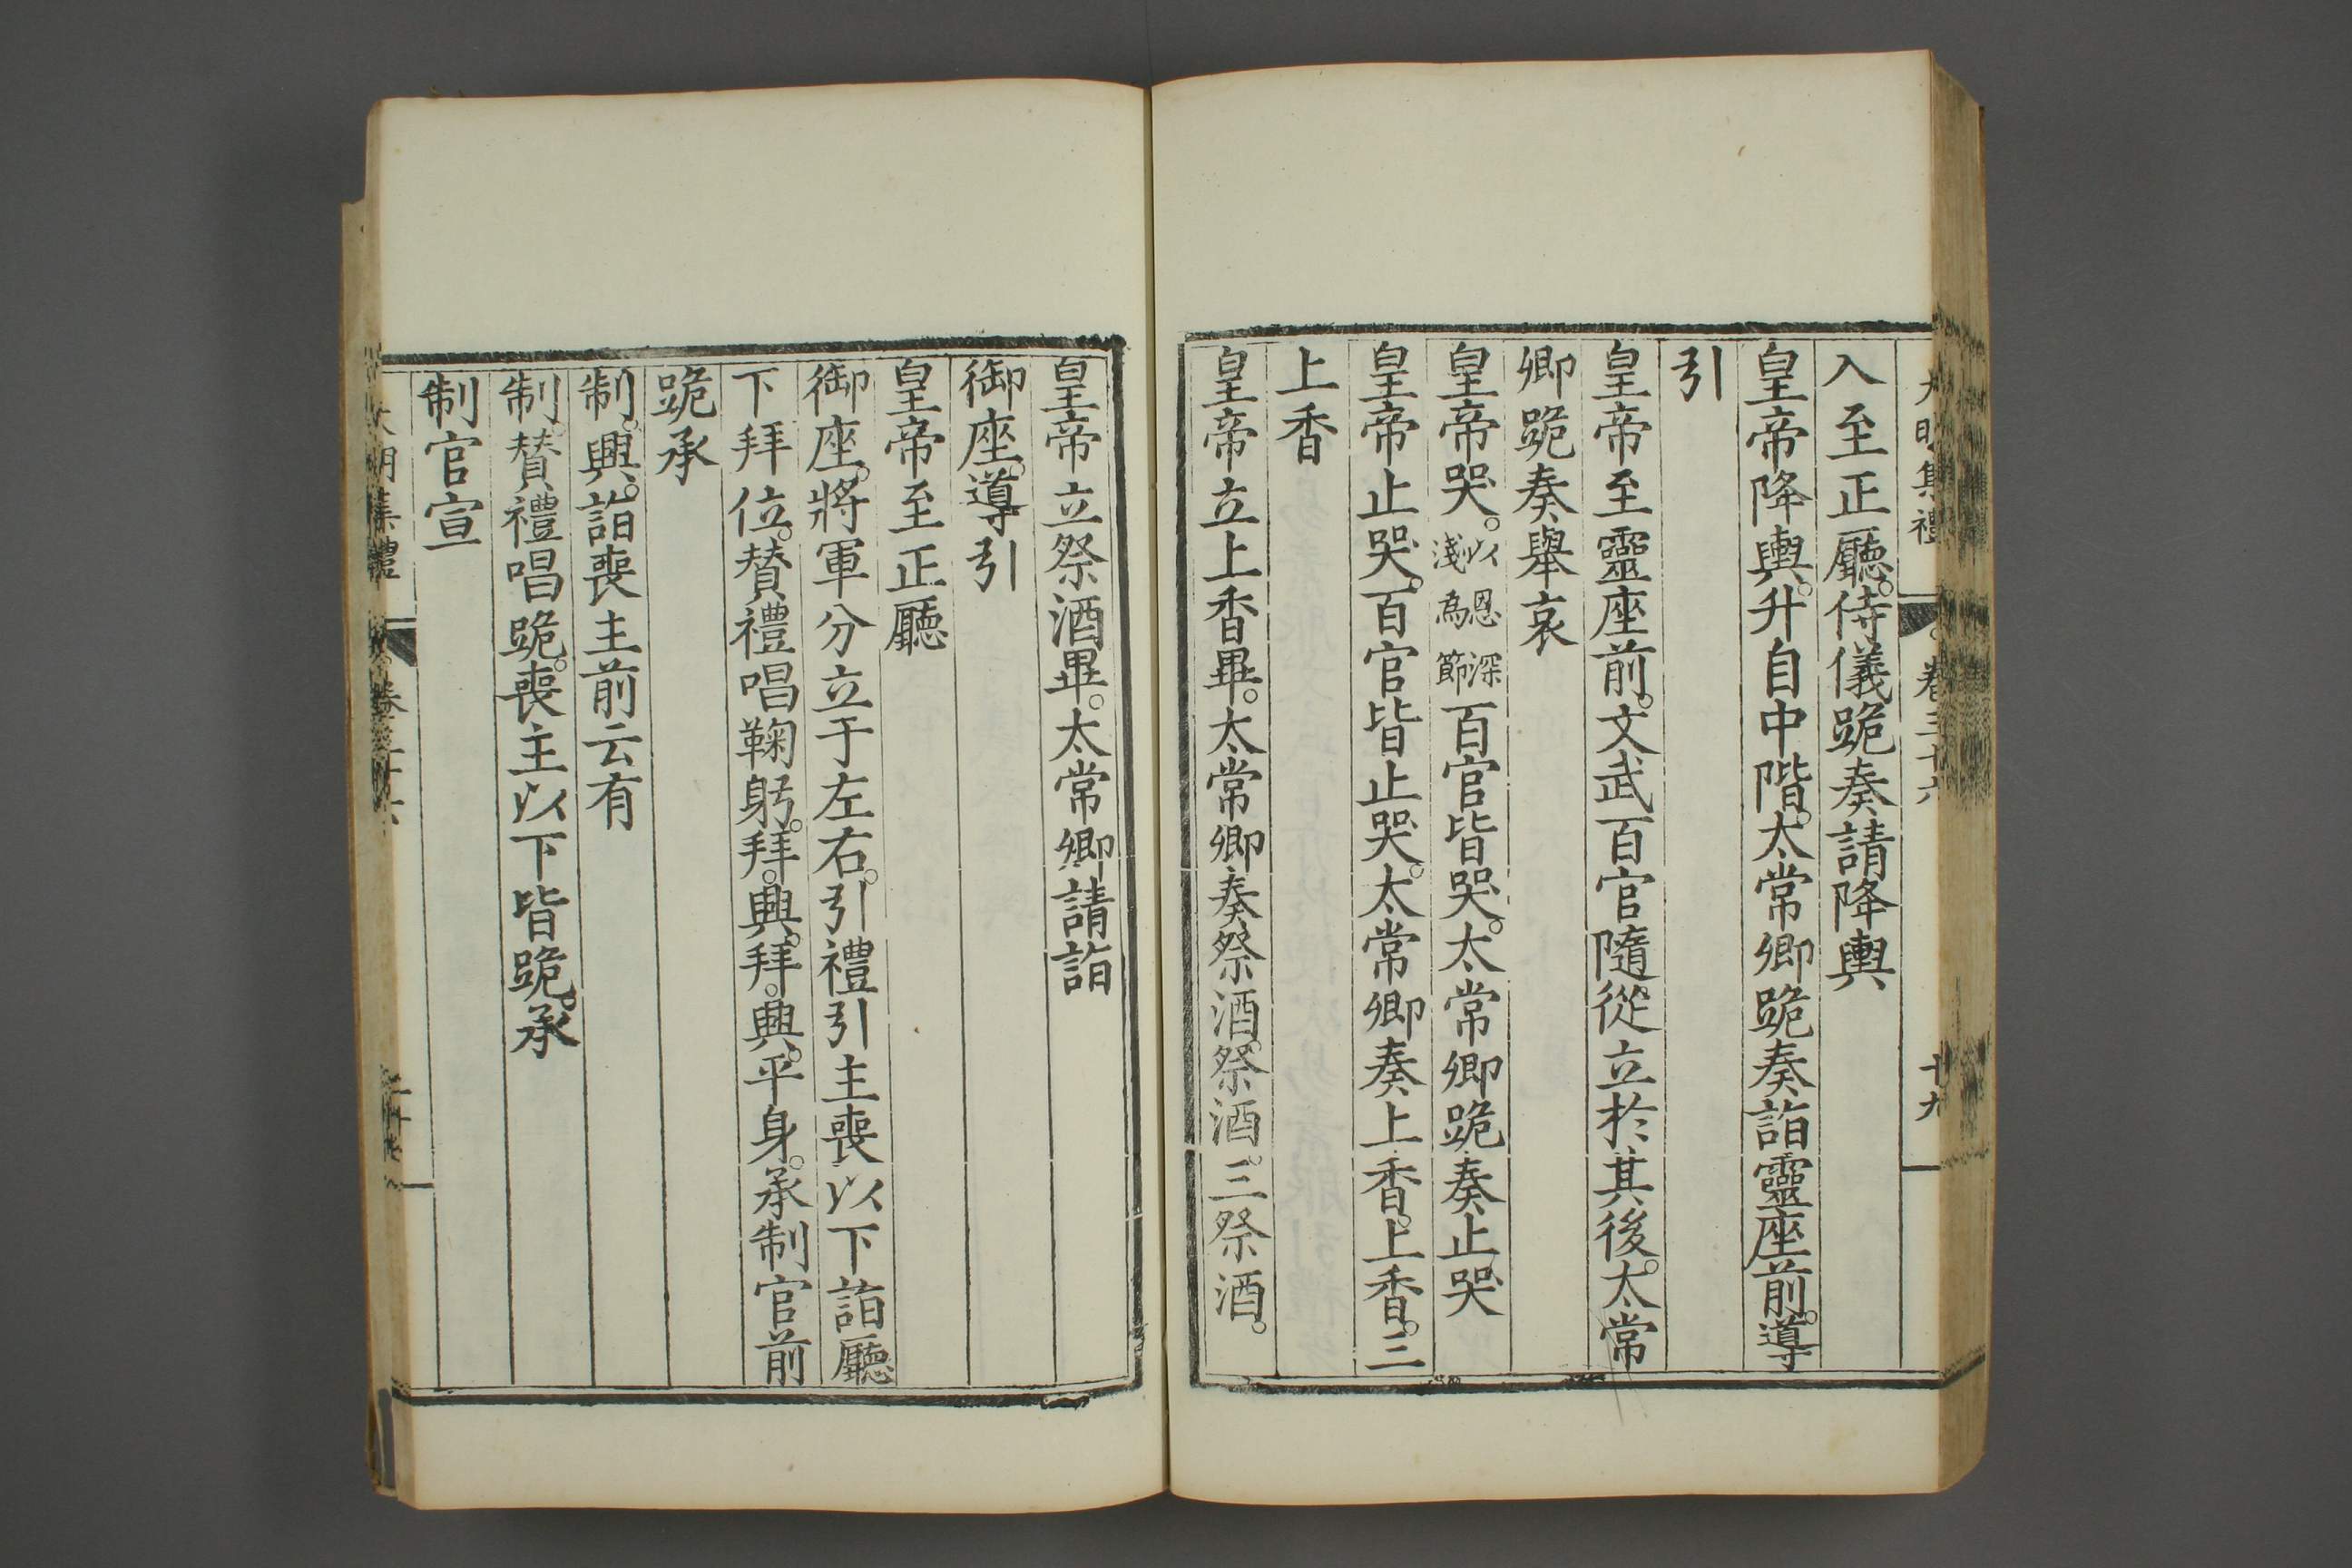 大明集禮 卷三十六 十九
入至正廳。侍儀跪奏請降輿
皇帝降輿。升自中階。太常卿跪奏詣靈座前。導
引
皇帝至靈座前。文武百官隨從立於其後。太常
卿跪奏舉哀
皇帝哭。以恩深淺為節百官皆哭。太常卿跪奏止哭
皇帝止哭。百官皆止哭。太常卿奏上香。上香。三
上香
皇帝立上香畢。太常卿奏祭酒。祭酒。三祭酒。
皇帝立祭酒畢。太常卿請詣
御座。導引
皇帝至正廳
御座。將軍分立于左右。引禮引主喪以下詣廳
下拜位。贊禮唱鞠躬。拜。興。拜。興。平身。承制官前
跪承
制。興。詣喪主前云有
制。贊禮唱跪。喪主以下皆跪。承
制官宣
大明集禮 卷三十六